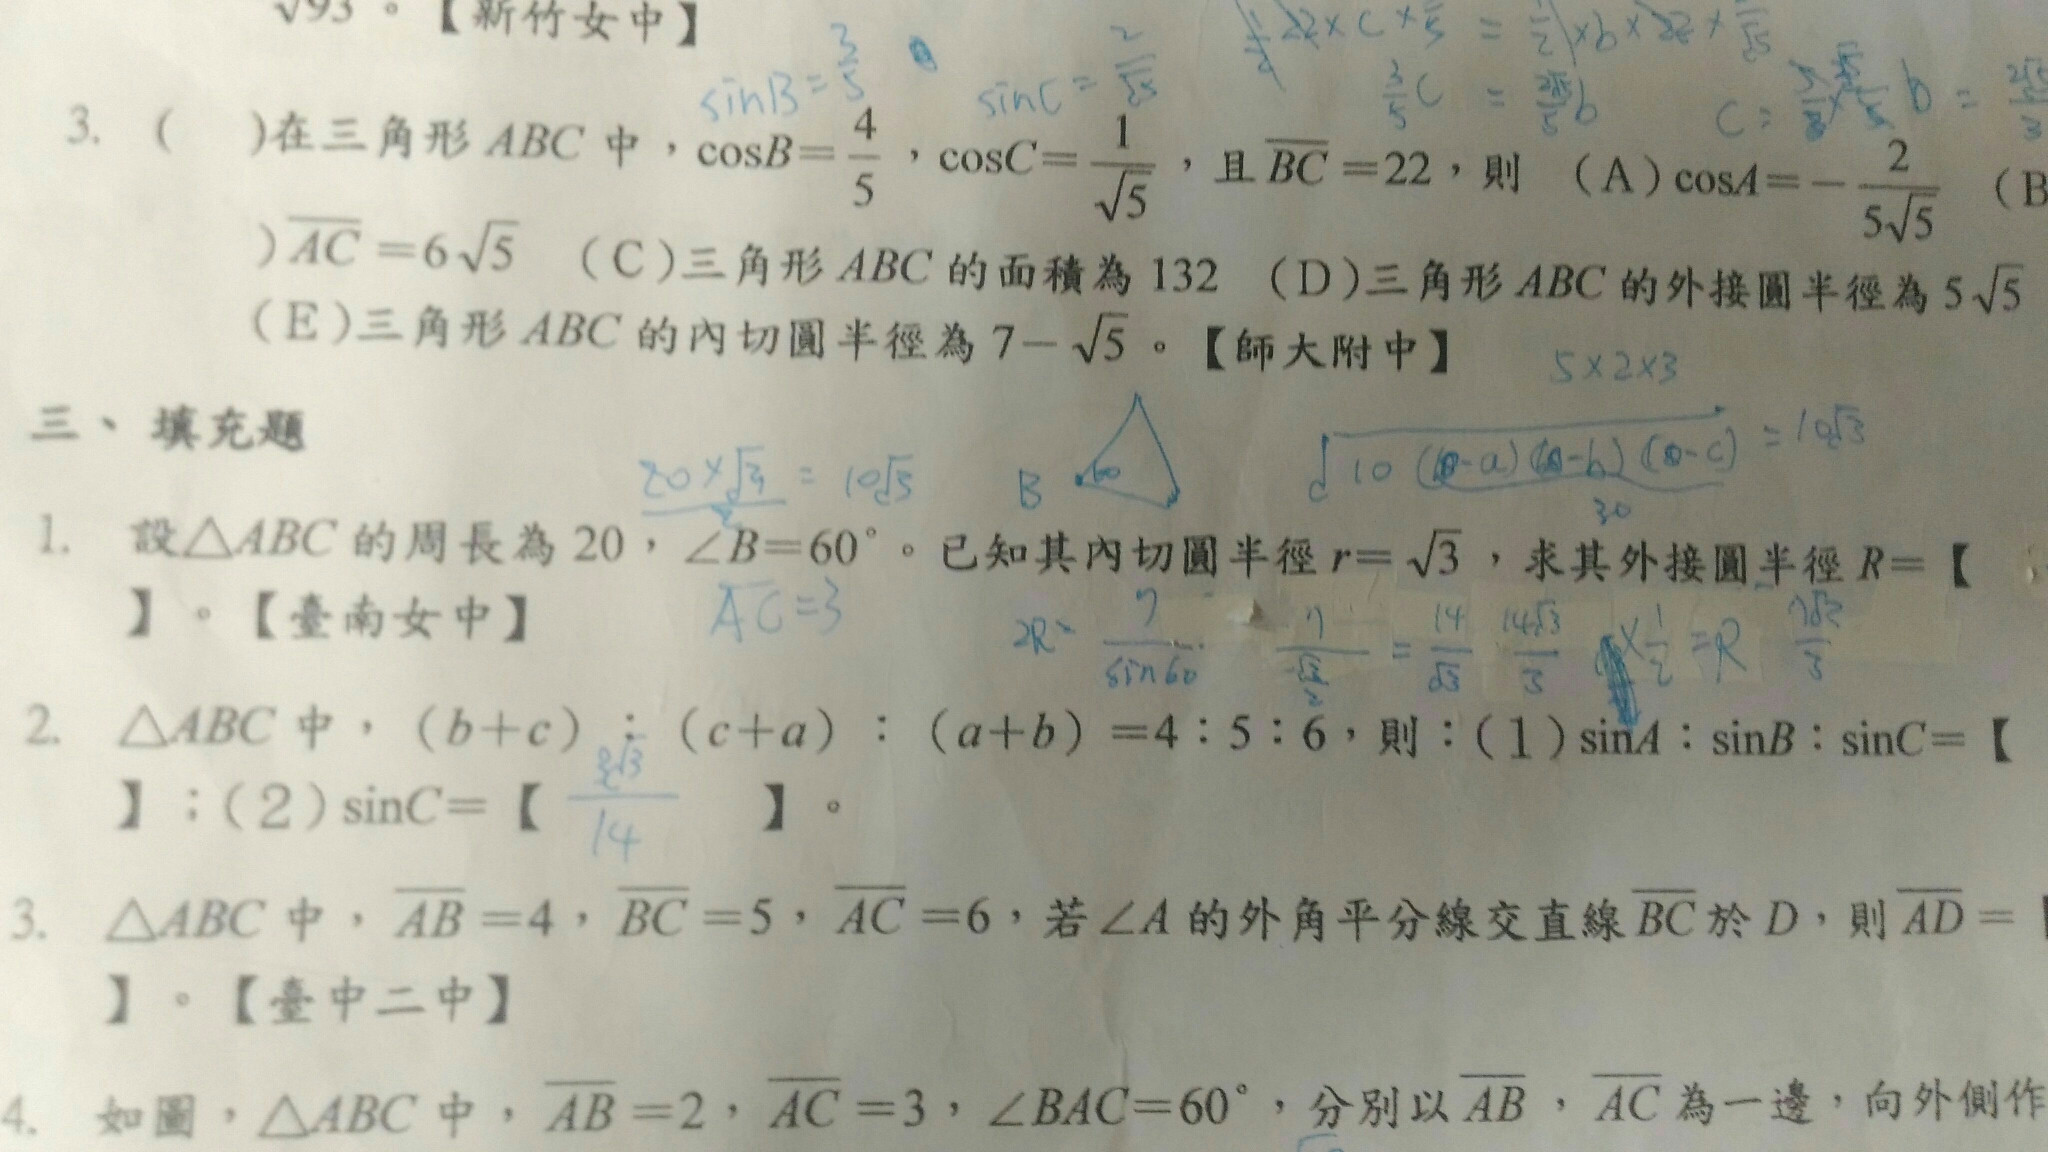 √93。【新竹女中】
sinB=3/5 sinC=2/√5
3. ( )在三角形ABC中，cosB=4/5，cosC=1/√5，且BC=22，則 (A)cosA=-2/5√5 (B
)AC=6√5 (C)三角形ABC的面積為132 (D)三角形ABC的外接圓半徑為5√5
(E)三角形ABC的內切圓半徑為7-√5。【師大附中】
5×2×3
三、填充題
= 10√3
B 60
30
1. 設△ABC的周長為20，∠B=60°。已知其內切圓半徑r=√3，求其外接圓半徑R=【
】。【臺南女中】
AC=3
2R= 7/sin60 = 14/√3 14√3/3 ×1/2 =R
2. △ABC中，(b+c)：(c+a)：(a+b)=4：5：6，則：(1)sinA：sinB：sinC=【
】；(2)sinC=【 /14 】。
3. △ABC中，AB=4，BC=5，AC=6，若∠A的外角平分線交直線BC於D，則AD=【
】。【臺中二中】
4. 如圖，△ABC中，AB=2，AC=3，∠BAC=60°，分別以AB，AC為一邊，向外側作